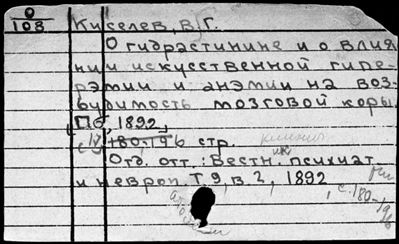 0
108
Киселев, В. Г.
О гидрастинине и о влия-
нии искусственной гипе-
рэмии и анэмии на воз-
будимость мозговой коры.
Пб, 1892,
с 180-196 стр.
Отд. отт.: Вестн. психиат.
и невроп. Т 9, в. 2, 1892
, с. 180-196